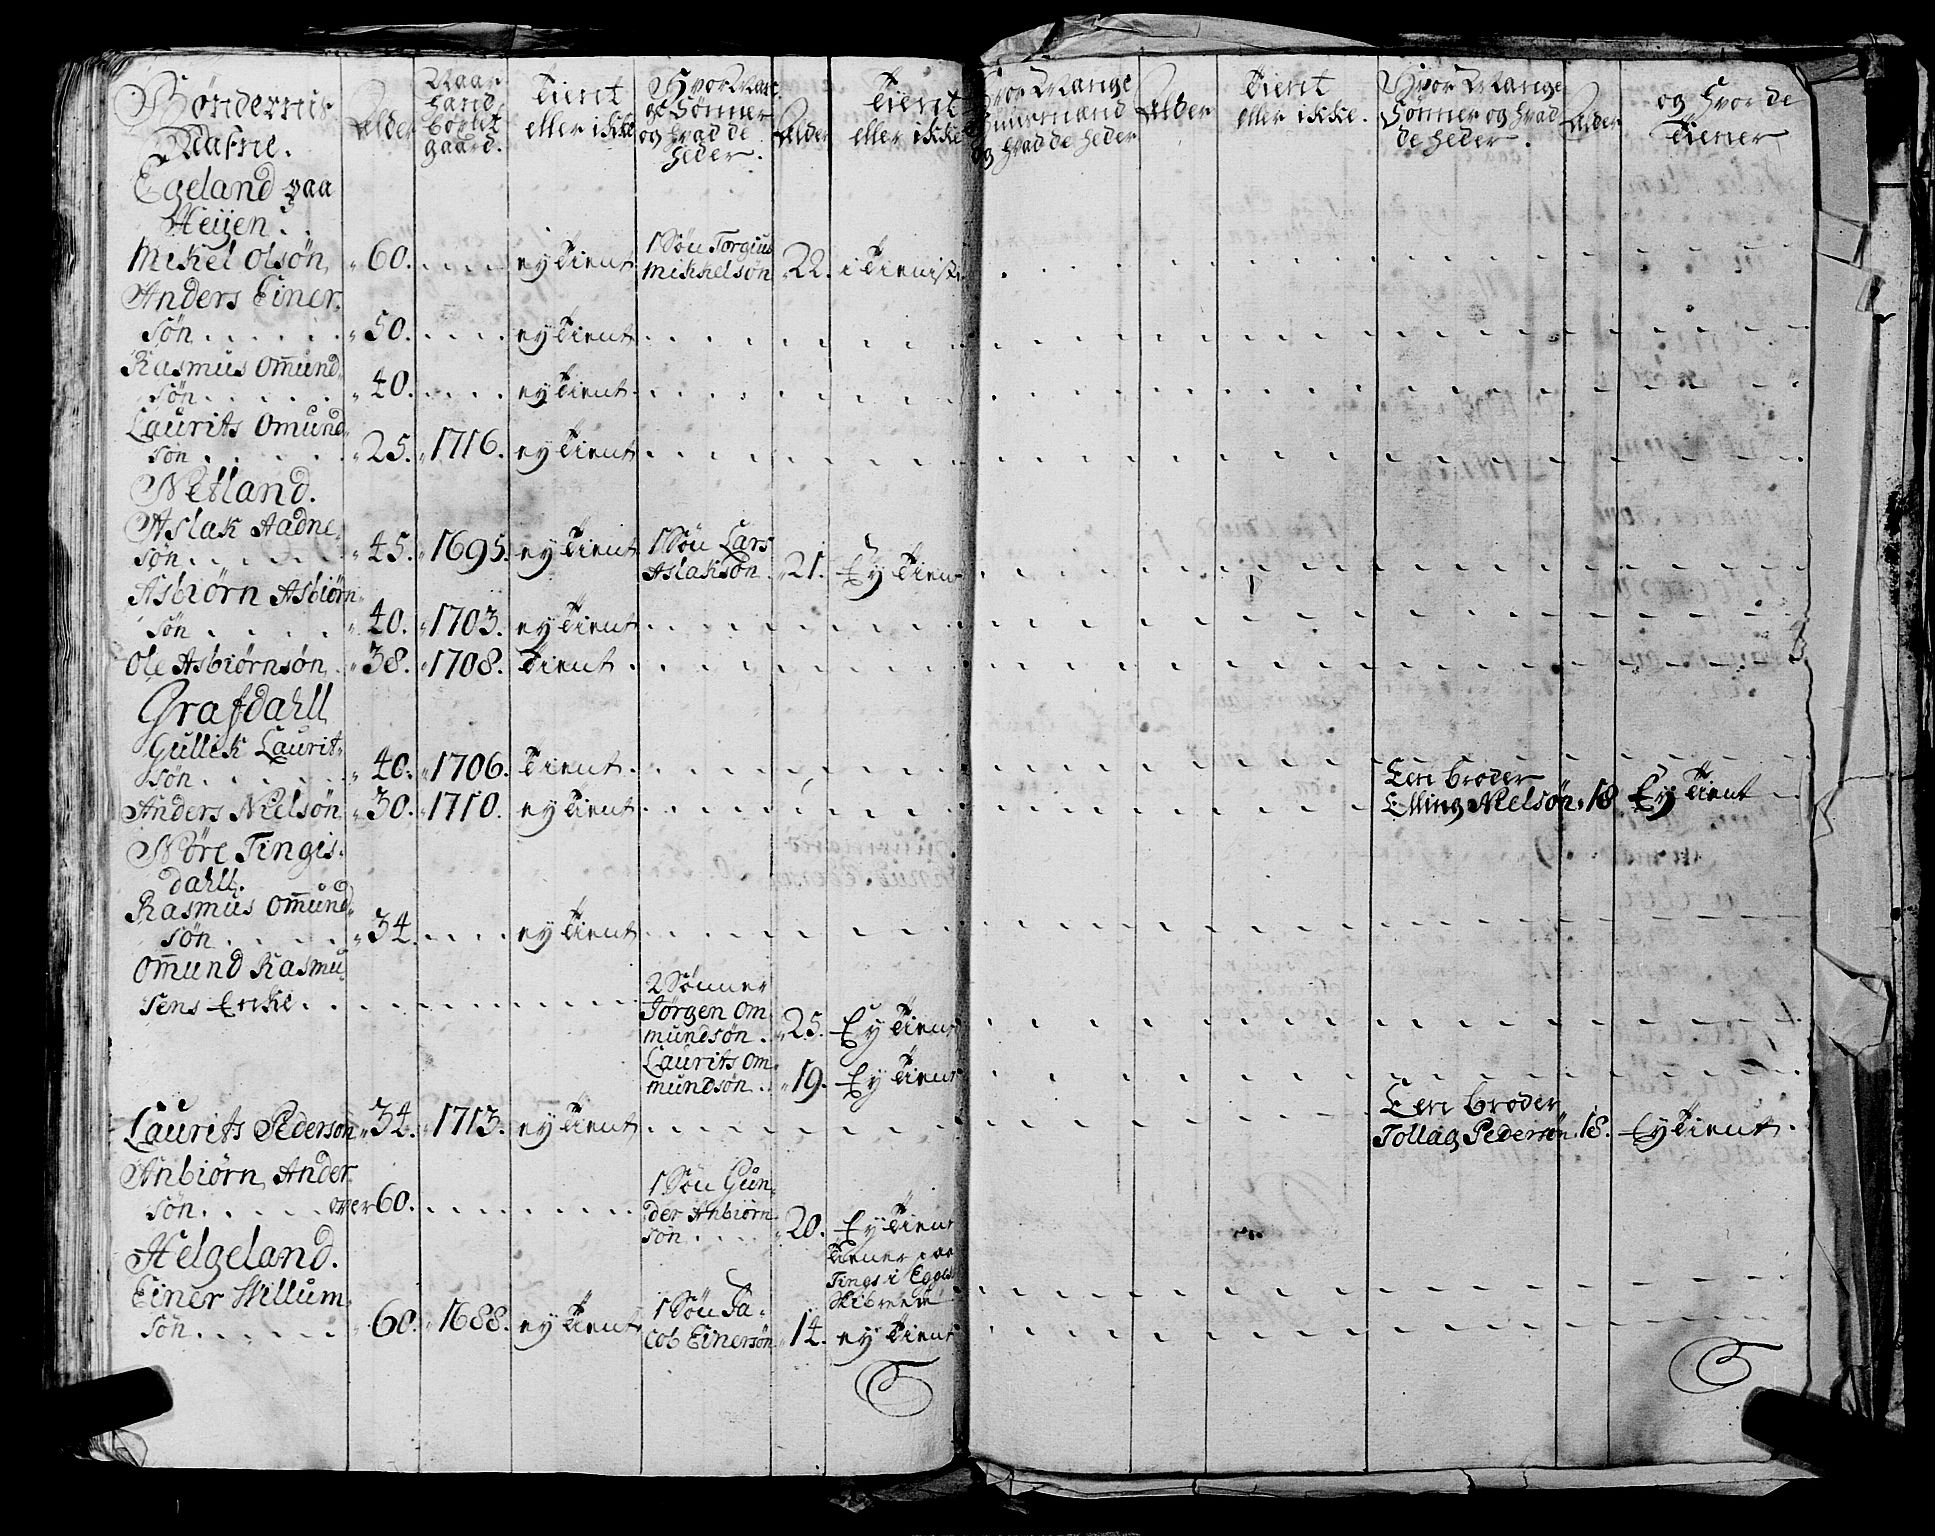 Böndernis Nafne. | Alder | Naar hand böxlet gaard. | Tient eller ikke | Hvor Mange Sönner og hvad de heder. | Alder | Tient eller ikke | Hvor Mange Huusmænd og hvad de heder | Alder | Tient eller ikke. | Hvor Mange Sönner og hvad de heder. | Alder | og hvor de Tiener
Egeland paa
Heijen.
Mikel Olsön | 60. | . . . . | ey Tient | 1 Søn Torgius Mikkelsön | 22. | i Tieniste
Anders Einer-
sön . . . . . | 50. | . . . . | ey Tient
Rasmus Omund-
sön . . . . . | 40. | . . . . | ey Tient.
Laurits Omund-
sön . . . . . | 25. | 1716. | ey Tient
Netland.
Aslak Aadne-
sön . . . . . | 45. | 1695. | ey Tient | 1 Søn Lars Aslaksön | 21. | Ey Tient
Asbiörn Asbiörn-
sön . . . . | 40. | 1703. | ey Tient
Ole Asbiörnsön. | 38. | 1708. | Tient.
Grafdahll
Gullik Laurit-
sön . . . . . | 40. | 1706. | Tient.
Anders Nielsön | 30. | 1710. | ey Tient | Een broder Elling Nielsön | 18 | Ey Tient
Nöre Tingis-
dahll.
Rasmus Omund-
sön . . . . . | 34. | . . . . | ey Tient
Omund Rasmu-
sens Encke . . . | 2 Sönner
Jörgen Om
mundsön . | 25. | Ey Tient
Laurits Om-
mundsön . . | 19. | Ey Tient
Laurits Pedersön | 34. | 1713. | ey Tient | Een broder Tollag Pedersön | 18. | Ey Tient.
Anbiörn Ander-
sön . . . . . over 60. | . . . . | 1 Søn Gun-
der Anbiörn-
sön . . . . | 20. | Ey Tient
Helgeland. | Tiener paa Tings i Egges Skibrede
Einer Willum-
sön . . . . . . | 60. | 1688. | ey Tient | 1 Søn Ja-
cob Einersön | 14. | ey Tient